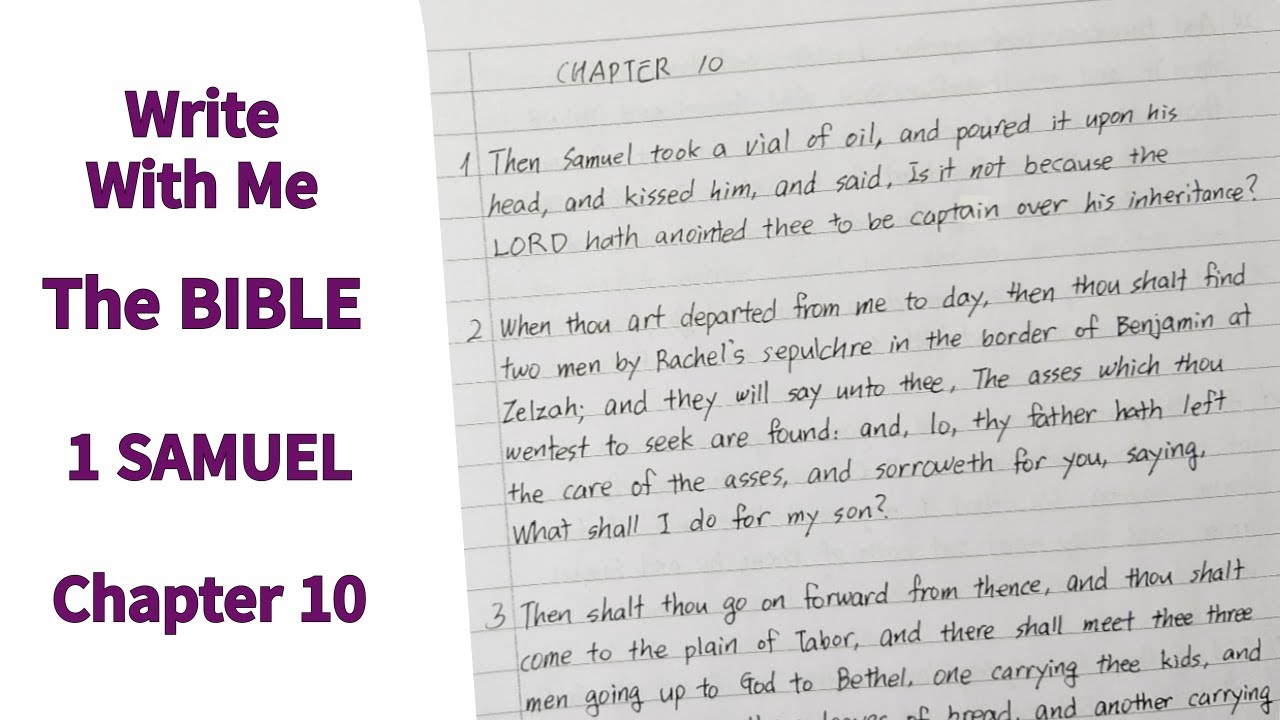 Write
With Me
The BIBLE
1 SAMUEL
Chapter 10
CHAPTER 10
1 Then Samuel took a vial of oil, and poured it upon his
head, and kissed him, and said, Is it not because the
LORD hath anointed thee to be captain over his inheritance?
2 When thou art departed from me to day, then thou shalt find
two men by Rachel's sepulchre in the border of Benjamin at
Zelzah; and they will say unto thee, The asses which thou
wentest to seek are found: and, lo, thy father hath left
the care of the asses, and sorroweth for you, saying,
What shall I do for my son?
3 Then shalt thou go on forward from thence, and thou shalt
come to the plain of Tabor, and there shall meet thee three
men going up to God to Bethel, one carrying thee kids, and
of bread, and another carrying